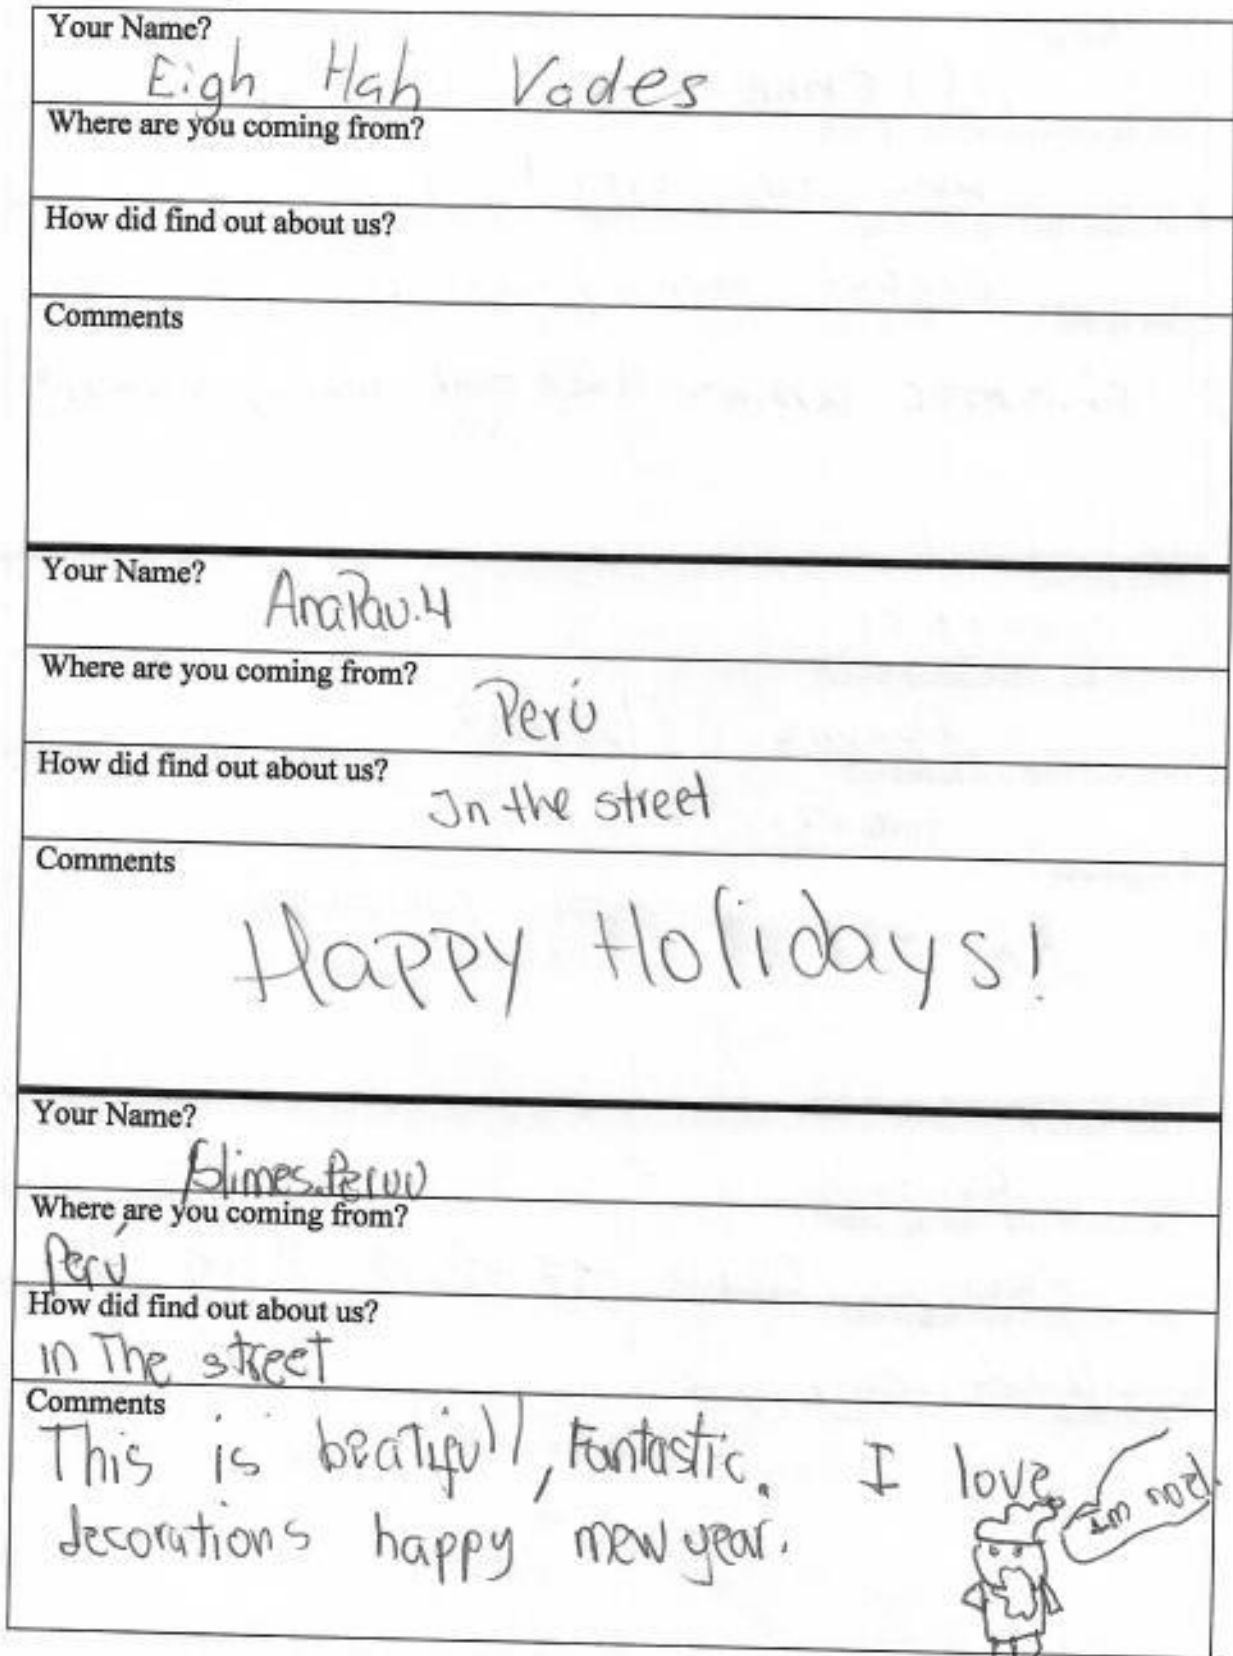 Your Name?
Eigh Hah Vodes
Where are you coming from?
How did find out about us?
Comments
Your Name?
AnaPau.4
Where are you coming from?
Perú
How did find out about us?
In the street
Comments
Happy Holidays!
Your Name?
Slimes.Peruu
Where are you coming from?
Perú
How did find out about us?
in The street
Comments
This is beatifull, Fantastic. I love
decorations happy mew year.
I'm noel.